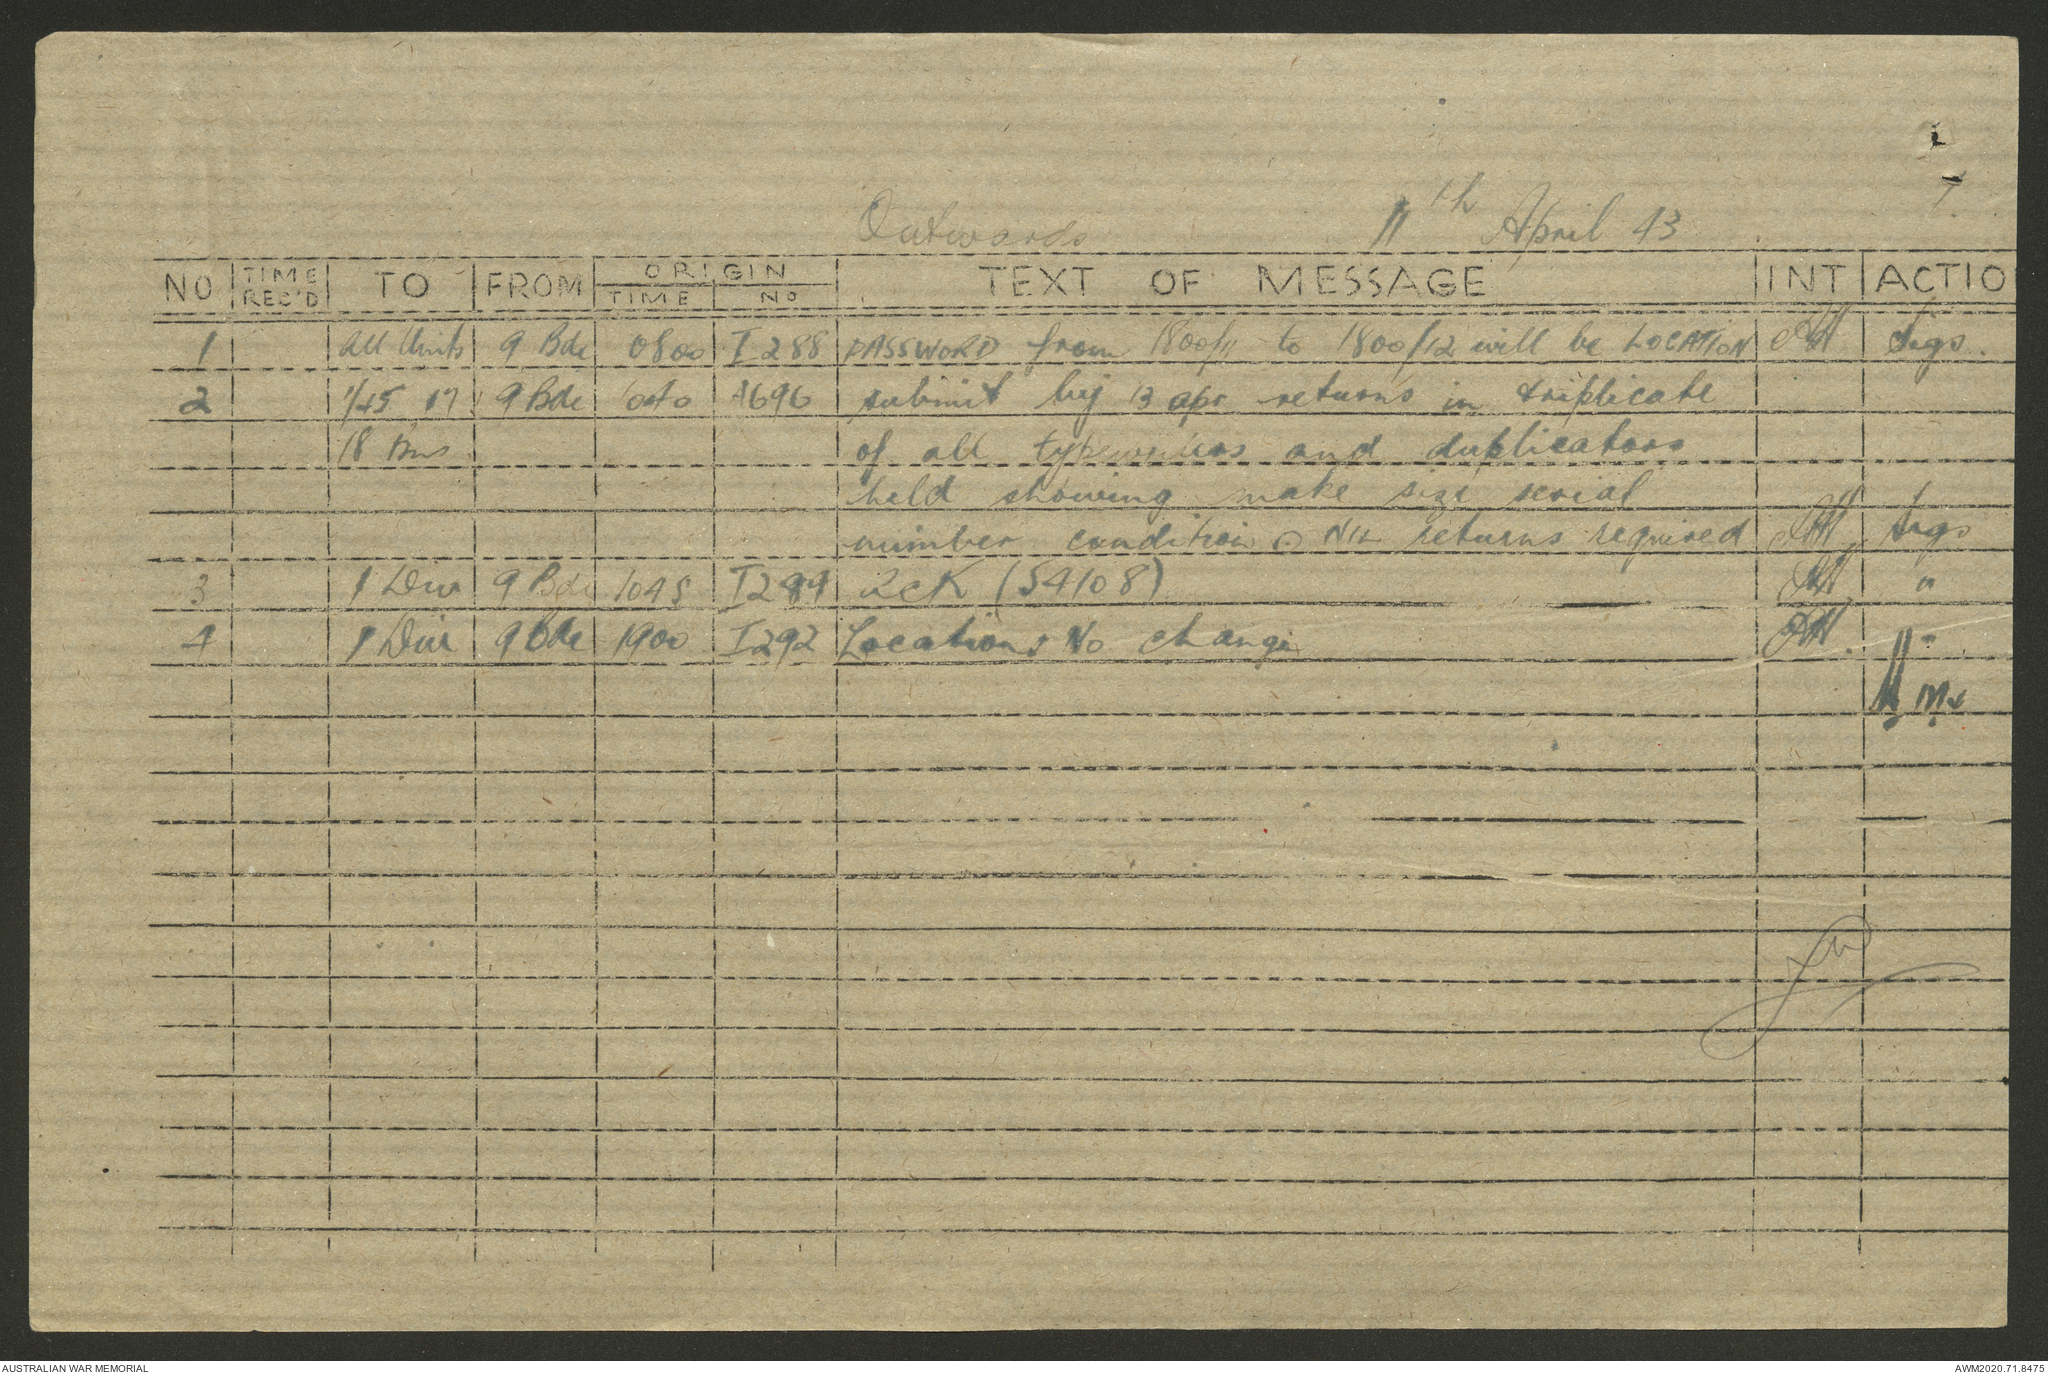 Outwards 11th April 43
NO TIME REC'D TO FROM ORIGIN TIME NO TEXT OF MESSAGE INT ACTIO
1 All Units 9 Bde 0800 I 288 PASSWORD from 1800/11 to 1800/12 will be LOCATION Sigs.
2 1/45 17 9 Bde 1040 A696 submit by 13 apr returns in triplicate
18 Bns of all typewriters and duplicators
held showing make size serial
number condition NIL returns required Sigs
3 1 Div 9 Bde 1045 I289 ack (S4108) "
4 1 Div 9 Bde 1900 I292 Locations No change "
AUSTRALIAN WAR MEMORIAL AWM2020.71.8475